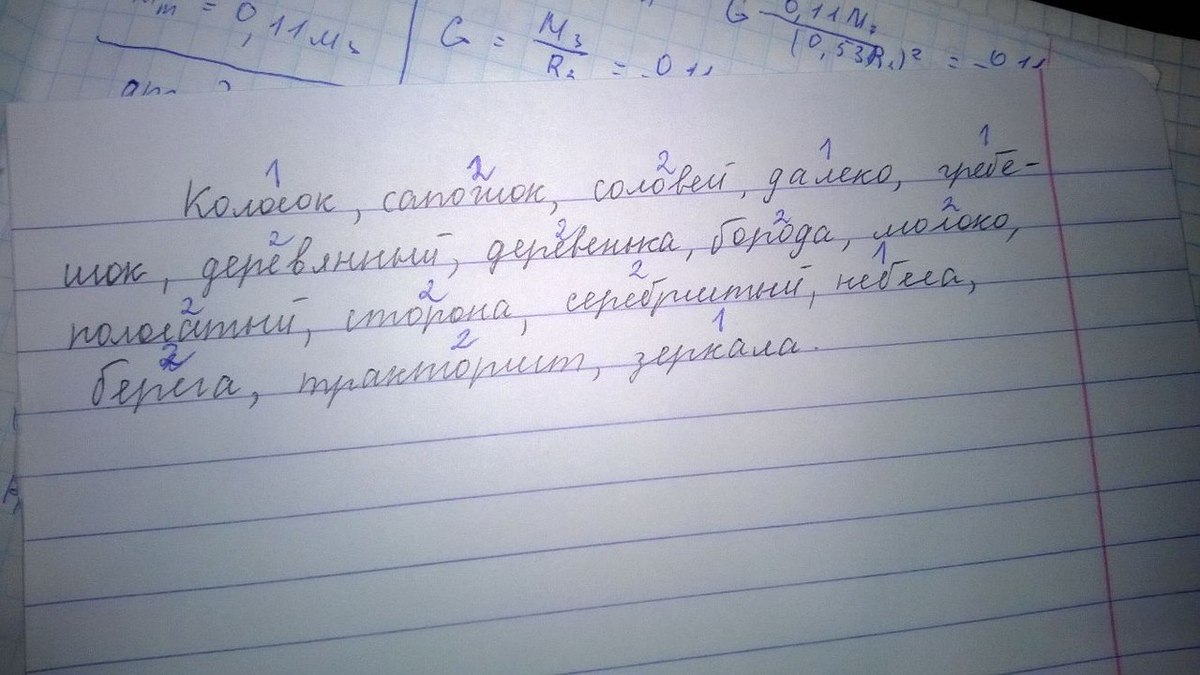 = 0,11M₃
G = M₃/R₂ = 0,11
G 0,11M₃/(0,53R₂)² = 0,11
1 2 2 1 1
Колосок, сапошок, соловей, далеко, гребе-
2 2 2 2
шок, деревянный, деревенька, борода, молоко,
2 2 2 1
полосатый, сторона, серебристый, небеса,
2 2 1
берега, тракторист, зеркала.